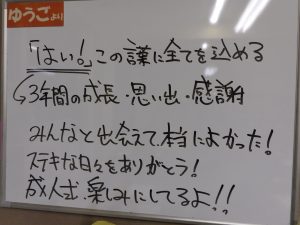 ゆうごより
「はい!」この言葉に全てを込める
↳3年間の成長・思い出・感謝
みんなと出会えて本当によかった!
ステキな日々をありがとう!
成人式楽しみにしてるよ!!